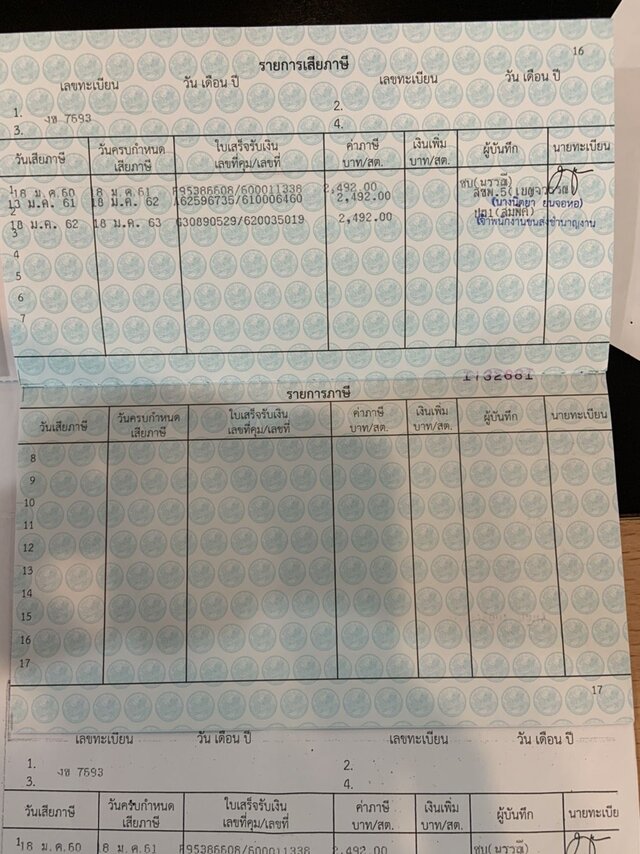 16
รายการเสียภาษี
เลขทะเบียน วัน เดือน ปี เลขทะเบียน วัน เดือน ปี
1. 2.
3. งข 7693 4.
วันเสียภาษี วันครบกำหนดเสียภาษี ใบเสร็จรับเงินเลขที่คุม/เลขที่ ค่าภาษีบาท/สต. เงินเพิ่มบาท/สต. ผู้บันทึก นายทะเบียน
1 18 ม.ค.60 18 ม.ค.61 F95386608/600011338 2,492.00
13 ม.ค. 61 18 ม.ค. 62 A62596735/610006460 2,492.00
2
18 ม.ค. 62 18 ม.ค. 63 G30890529/620035019 2,492.00
3
เจ้าพนักงานขนส่งชำนาญงาน
4
5
6
7
1732681
รายการภาษี
วันเสียภาษี วันครบกำหนดเสียภาษี ใบเสร็จรับเงินเลขที่คุม/เลขที่ ค่าภาษีบาท/สต. เงินเพิ่มบาท/สต. ผู้บันทึก นายทะเบียน
8
9
10
11
12
13
14
15
16
17
17
เลขทะเบียน วัน เดือน ปี เลขทะเบียน วัน เดือน ปี
1. 2.
3. งข 7693 4.
วันเสียภาษี วันครบกำหนดเสียภาษี ใบเสร็จรับเงินเลขที่คุม/เลขที่ ค่าภาษีบาท/สต. เงินเพิ่มบาท/สต. ผู้บันทึก นายทะเบีย
1 18 ม.ค.60 18 ม.ค.61 F95386608/600011338 2,492.00